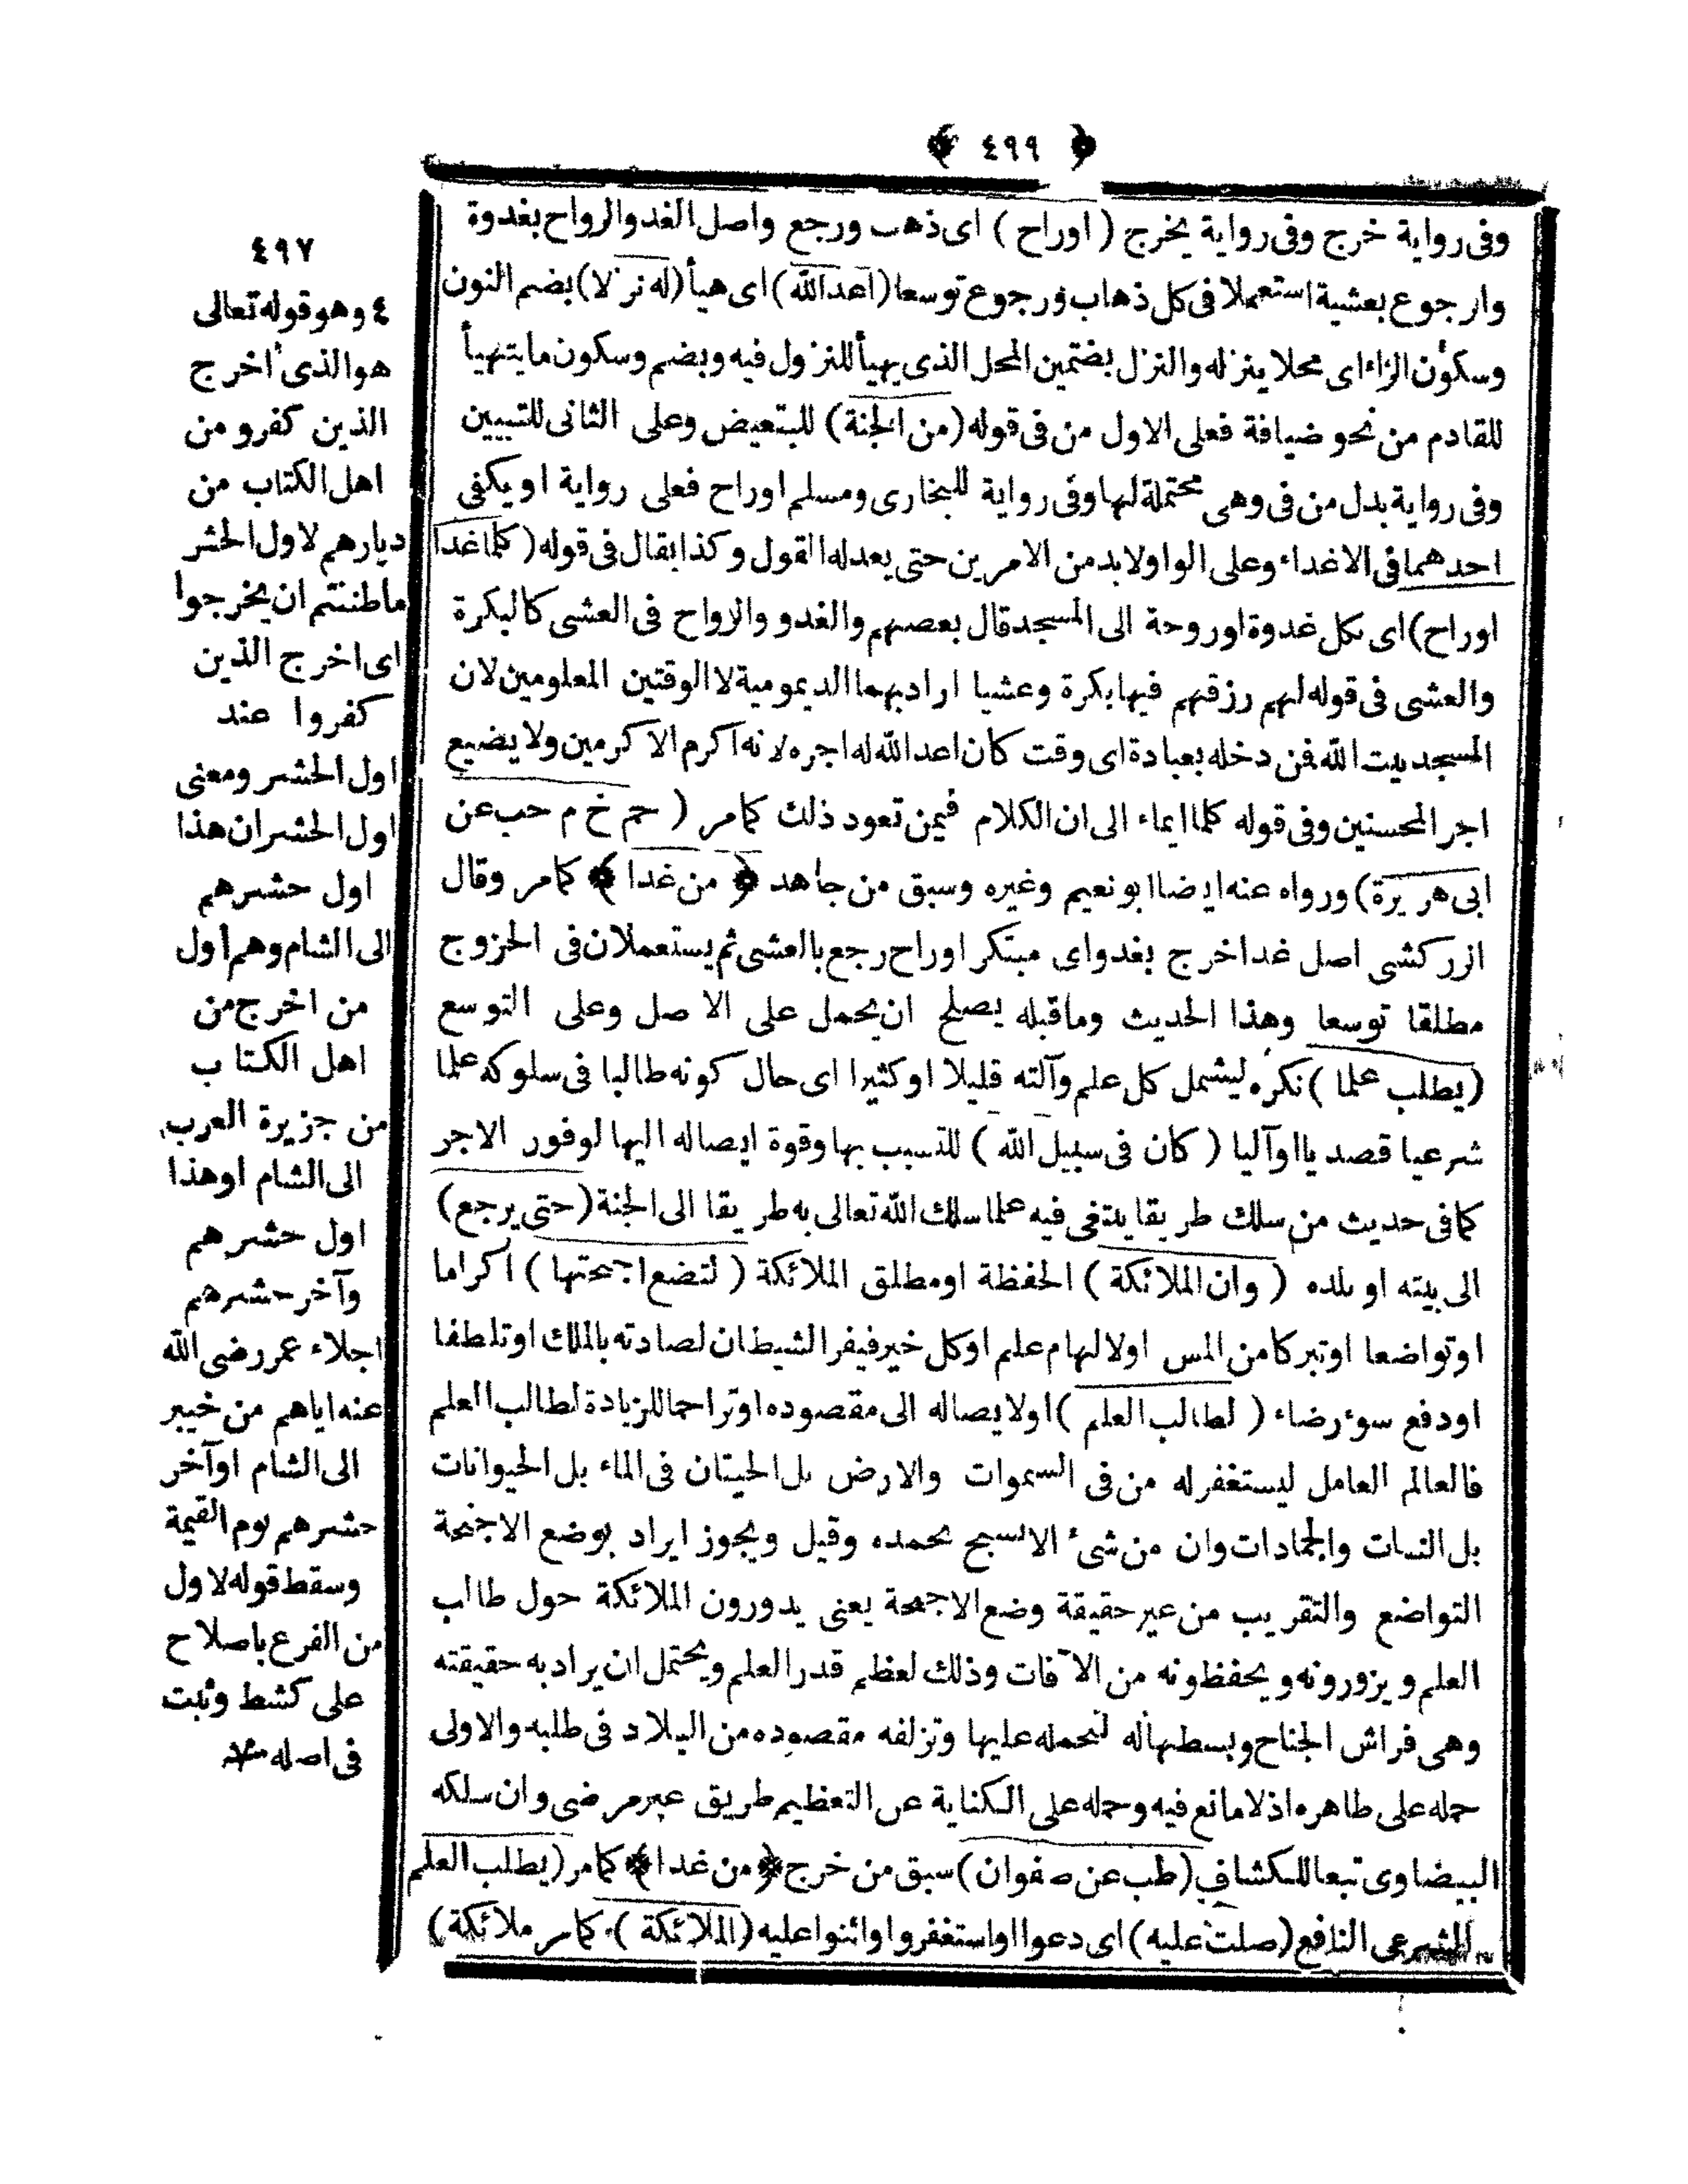 ﴿ ٤٩٩ ﴾
وفى رواية خرج وفى رواية يخرج ( اوراح ) اى ذهب ورجع واصل الغدو الرواح بغدوة
وارجوع بعشية استعملا فى كل ذهاب ورجوع توسعا (اعدالله) اى هيأ (له نزلا) بضم النون
وسكون الزاء اى محلا ينزله والنزل بضتمين المحل الذى يهيأ للنزول فيه وبضم وسكون ما يتهيأ
للقادم من نحو ضيافة فعلى الاول من فى قوله (من الجنة) للبتعيض وعلى الثانى للتبيين
وفى رواية بدل من فى وهى محتملة لها وفى رواية للبخارى ومسلم اوراح فعلى رواية او يكفى
احدهما فى الاغداء وعلى الواو لابد من الامرين حتى يعدله القول وكذا يقال فى قوله (كلما غدا
اوراح) اى بكل غدوة اوروحة الى المسجد قال بعضهم والغدو والرواح فى العشى كالبكرة
والعشى فى قوله لهم رزقهم فيها بكرة وعشيا ارادبهما الديمومية لا الوقتين المعلومين لان
المسجد بيت الله فمن دخله بعبادة اى وقت كان اعد الله له اجره لانه اكرم الاكرمين ولا يضيع
اجر المحسنين وفى قوله كلما ايماء الى ان الكلام فيمن تعود ذلك كامر ( حم خ م حب عن
ابى هريرة) ورواه عنه ايضا ابونعيم وغيره وسبق من جاهد ﴿ من غدا ﴾ كامر وقال
الزركشى اصل غدا خرج بغدو اى مبتكر اوراح رجع بالعشى ثم يستعملان فى الخروج
مطلقا توسعا وهذا الحديث وماقبله يصلح ان يحمل على الاصل وعلى التوسع
(يطلب علما ) نكره ليشمل كل علم وآلته قليلا اوكثيرا اى حال كونه طالبا فى سلوكه علما
شرعيا قصديا اوآليا ( كان فى سبيل الله ) للتسبب بها وقوة ايصاله اليها لوفور الاجر
كمافى حديث من سلك طريقا يبتغى فيه علما سلك الله تعالى به طريقا الى الجنة (حتى يرجع)
الى بيته او بلده ( وان الملائكة ) الحفظة اومطلق الملائكة ( لتضع اجنحتها ) اكراما
اوتواضعا اوتبركا من المس اولالهام علم اوكل خير فيفر الشيطان لصادته بالملك اوتلطفا
اودفع سوء رضاء ( لطالب العلم ) اولايصاله الى مقصوده اوتراحما للزيادة لطالب العلم
فالعالم العامل ليستغفرله من فى السموات والارض بل الحيتان فى الماء بل الحيوانات
بل النبات والجمادات وان من شىء الا يسبح بحمده وقيل ويجوز ايراد بوضع الاجنحة
التواضع والتقريب من غير حقيقة وضع الاجنحة يعنى يدورون الملائكة حول طالب
العلم ويزورونه ويحفظونه من الآفات وذلك لعظم قدر العلم ويحتمل ان يراد به حقيقته
وهى فراش الجناح وبسطها له لتحمله عليها وتزلفه مقصوده من البلاد فى طلبه والاولى
حمله على ظاهره اذلا مانع فيه وحمله على الكناية عن التعظيم طريق غير مرضى وان سلكه
البيضاوى تبعا للكشاف (طب عن صفوان) سبق من خرج ﴿من غدا﴾ كامر (يطلب العلم
الشرعى النافع (صلت عليه) اى دعوا اواستغفروا واثنوا عليه (الملائكة ) كامر ملائكة)
٤٩٧
٤ وهو قوله تعالى
هو الذى اخرج
الذين كفرو من
اهل الكتاب من
ديارهم لاول الحشر
ماظننتم ان يخرجوا
اى اخرج الذين
كفروا عند
اول الحشر ومعنى
اول الحشر ان هذا
اول حشرهم
الى الشام وهم اول
من اخرج من
اهل الكتاب
من جزيرة العرب
الى الشام اوهذا
اول حشرهم
وآخر حشرهم
اجلاء عمر رضى الله
عنه اياهم من خيبر
الى الشام اوآخر
حشرهم يوم القيمة
وسقط قوله لاول
من الفرع باصلاح
على كشط وثبت
فى اصله